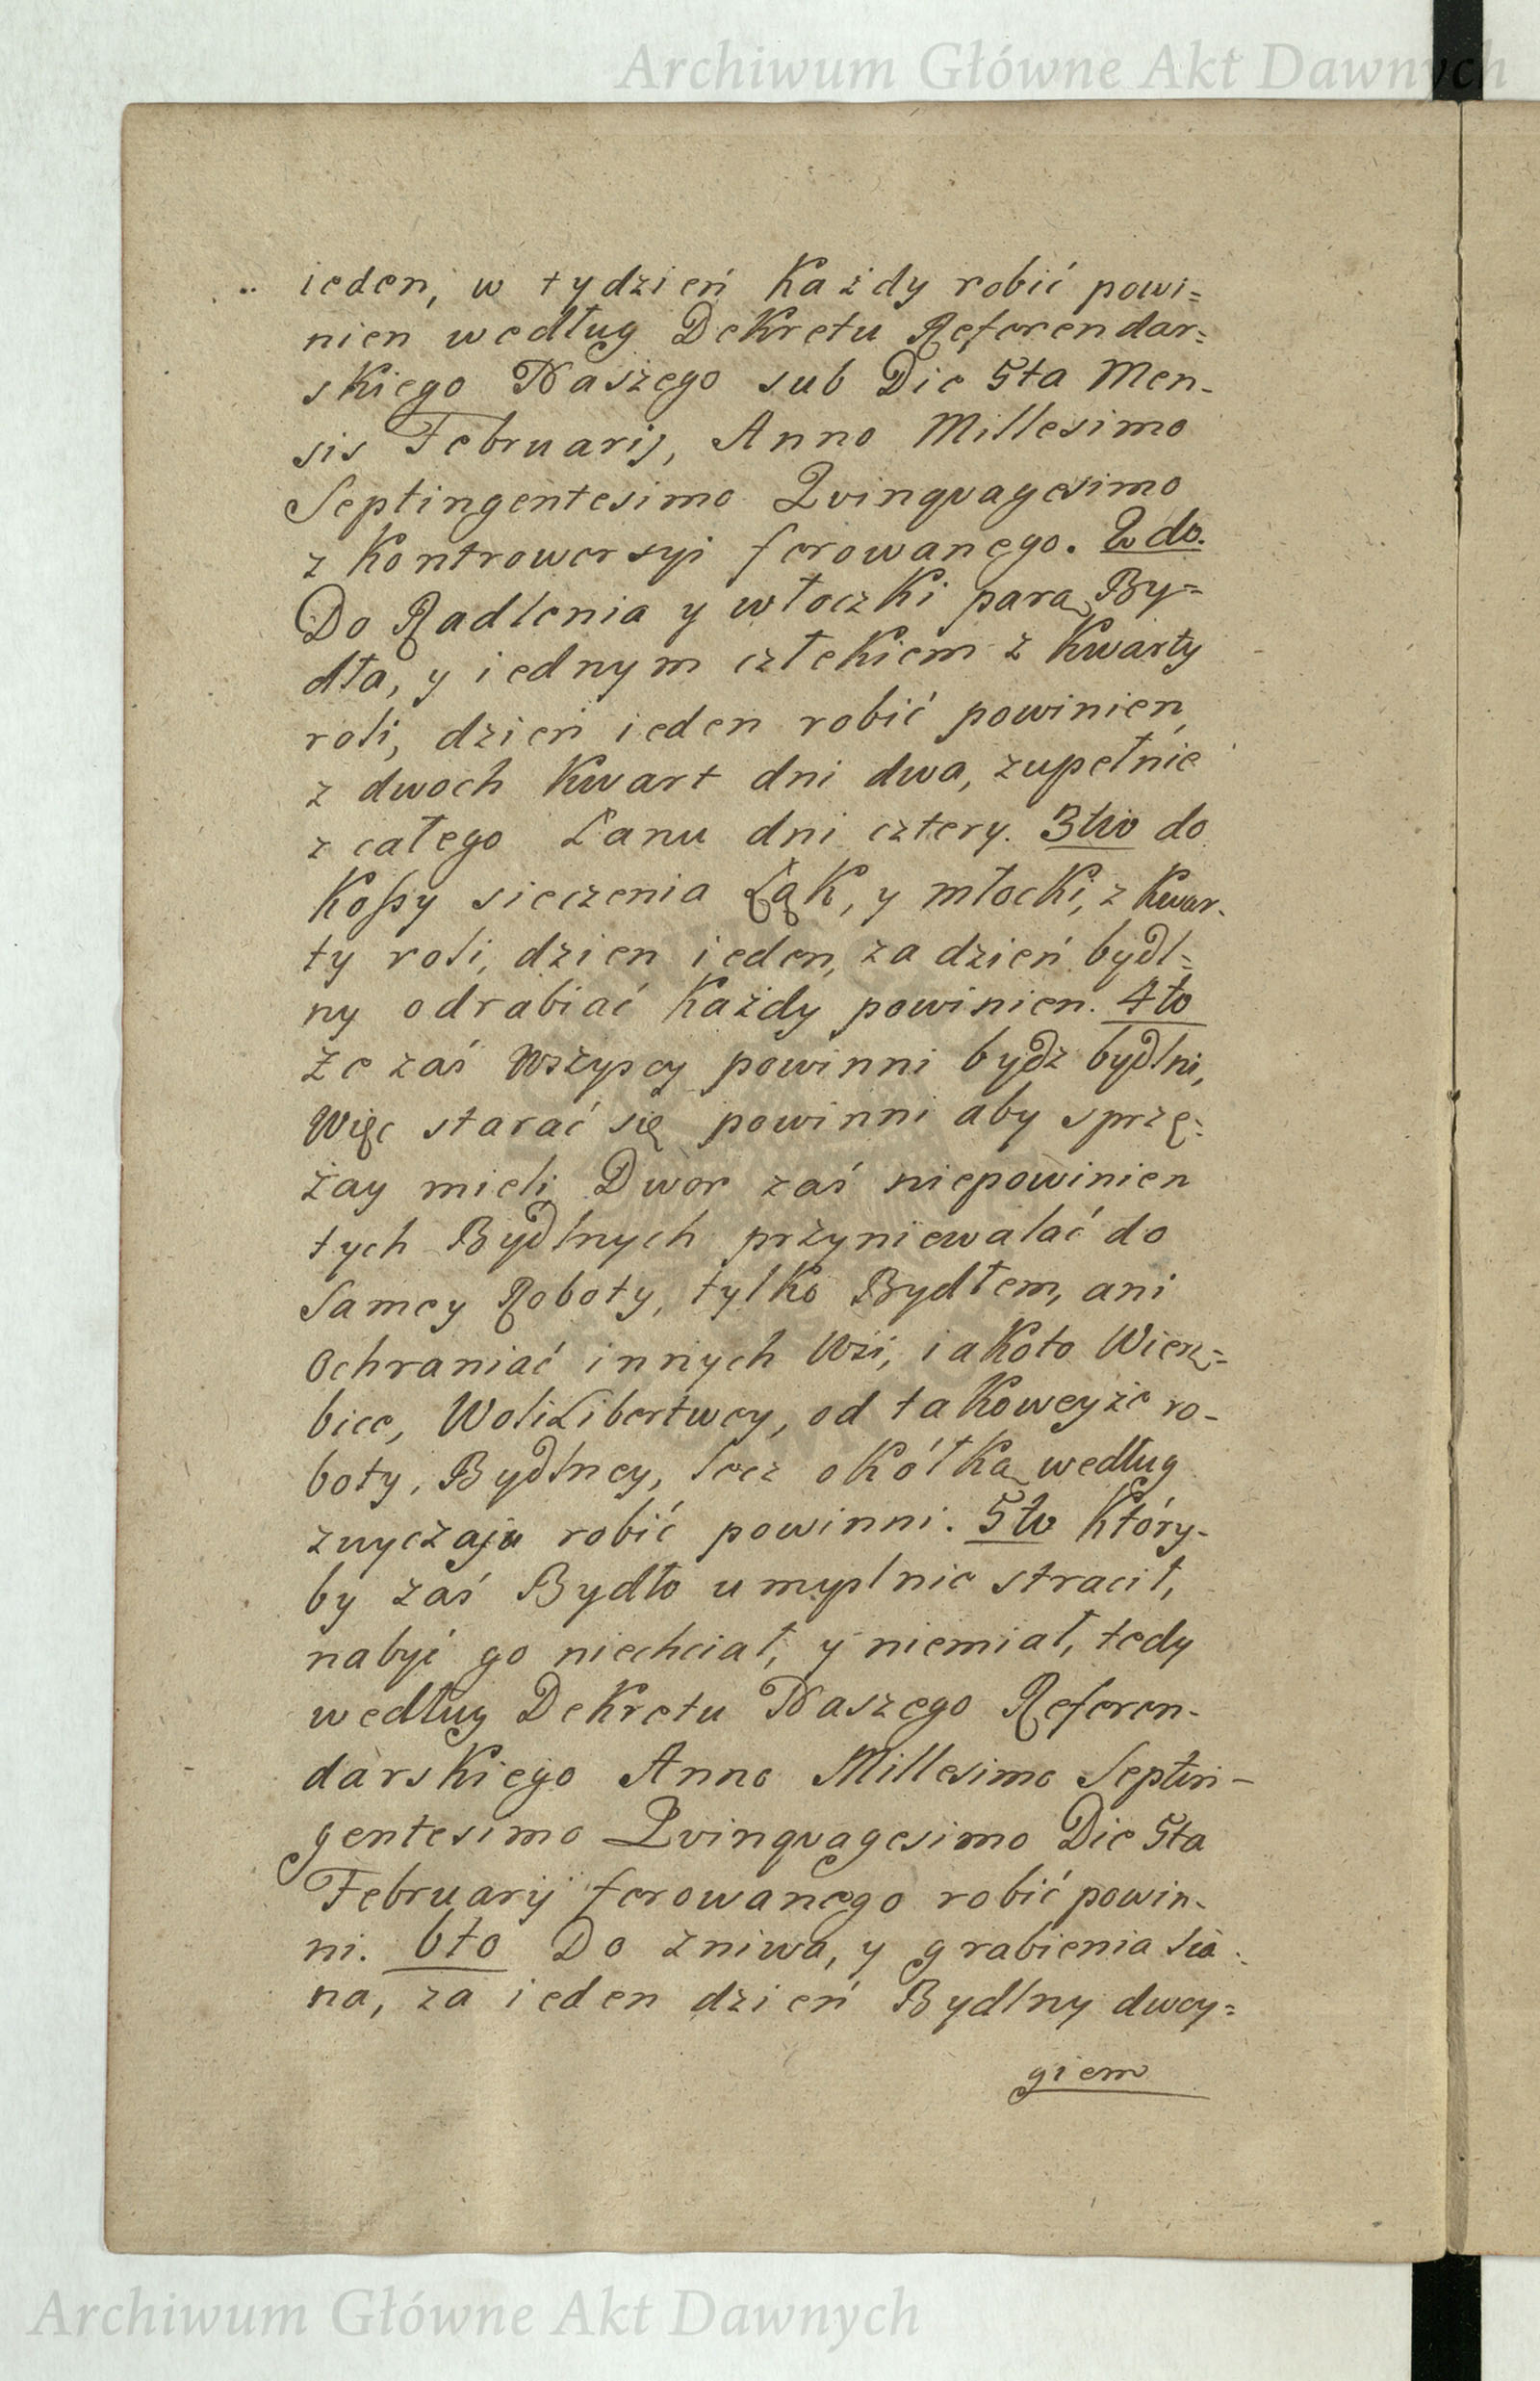 Archiwum Główne Akt Dawnych
ieden, w tydzień Każdy robić powi=
nien według Dekretu Referendar=
skiego Naszego sub Die 5ta Men-
sis Februarij, Anno Millesimo
Septingentesimo Qvinqvagesimo
z Kontrowersyi ferowanego. 2do.
Do Radlenia y włoczki parą By=
dła, y iednym człekiem z Kwarty
roli, dzień ieden robić powinien,
z dwoch Kwart dni dwa, zupełnie
z całego Łanu dni cztery. 3tio do
Kossy sieczenia Łąk, y młocki, z Kwar-
ty roli, dzien ieden, za dzień bydl=
ny odrabiać Każdy powinien. 4to
Że zaś wszyscy powinni bydz bydlni,
Więc starać się powinni aby sprzę=
żay mieli, Dwor zaś niepowinien
tych Bydlnych przyniewalać do
Samey Roboty, tylko Bydłem, ani
Ochraniać innych Wsi, iakoto Wierz=
bice, Woli Libertwey, od takoweyże ro-
boty, Bydlney, lecz okółką według
zwyczaju robić powinni. 5to Który-
by zaś Bydło umyslnie stracił,
nabyć go niechciał, y niemiał, tedy
według Dekretu Naszego Referen-
darskiego Anno Millesimo Septin-
gentesimo Qvinqvagesimo Die 5ta
Februarij ferowanego robić powin-
ni. 6to Do żniwa, y grabienia sia-
na, za ieden dzień Bydlny dwoy=
giem
Archiwum Główne Akt Dawnych